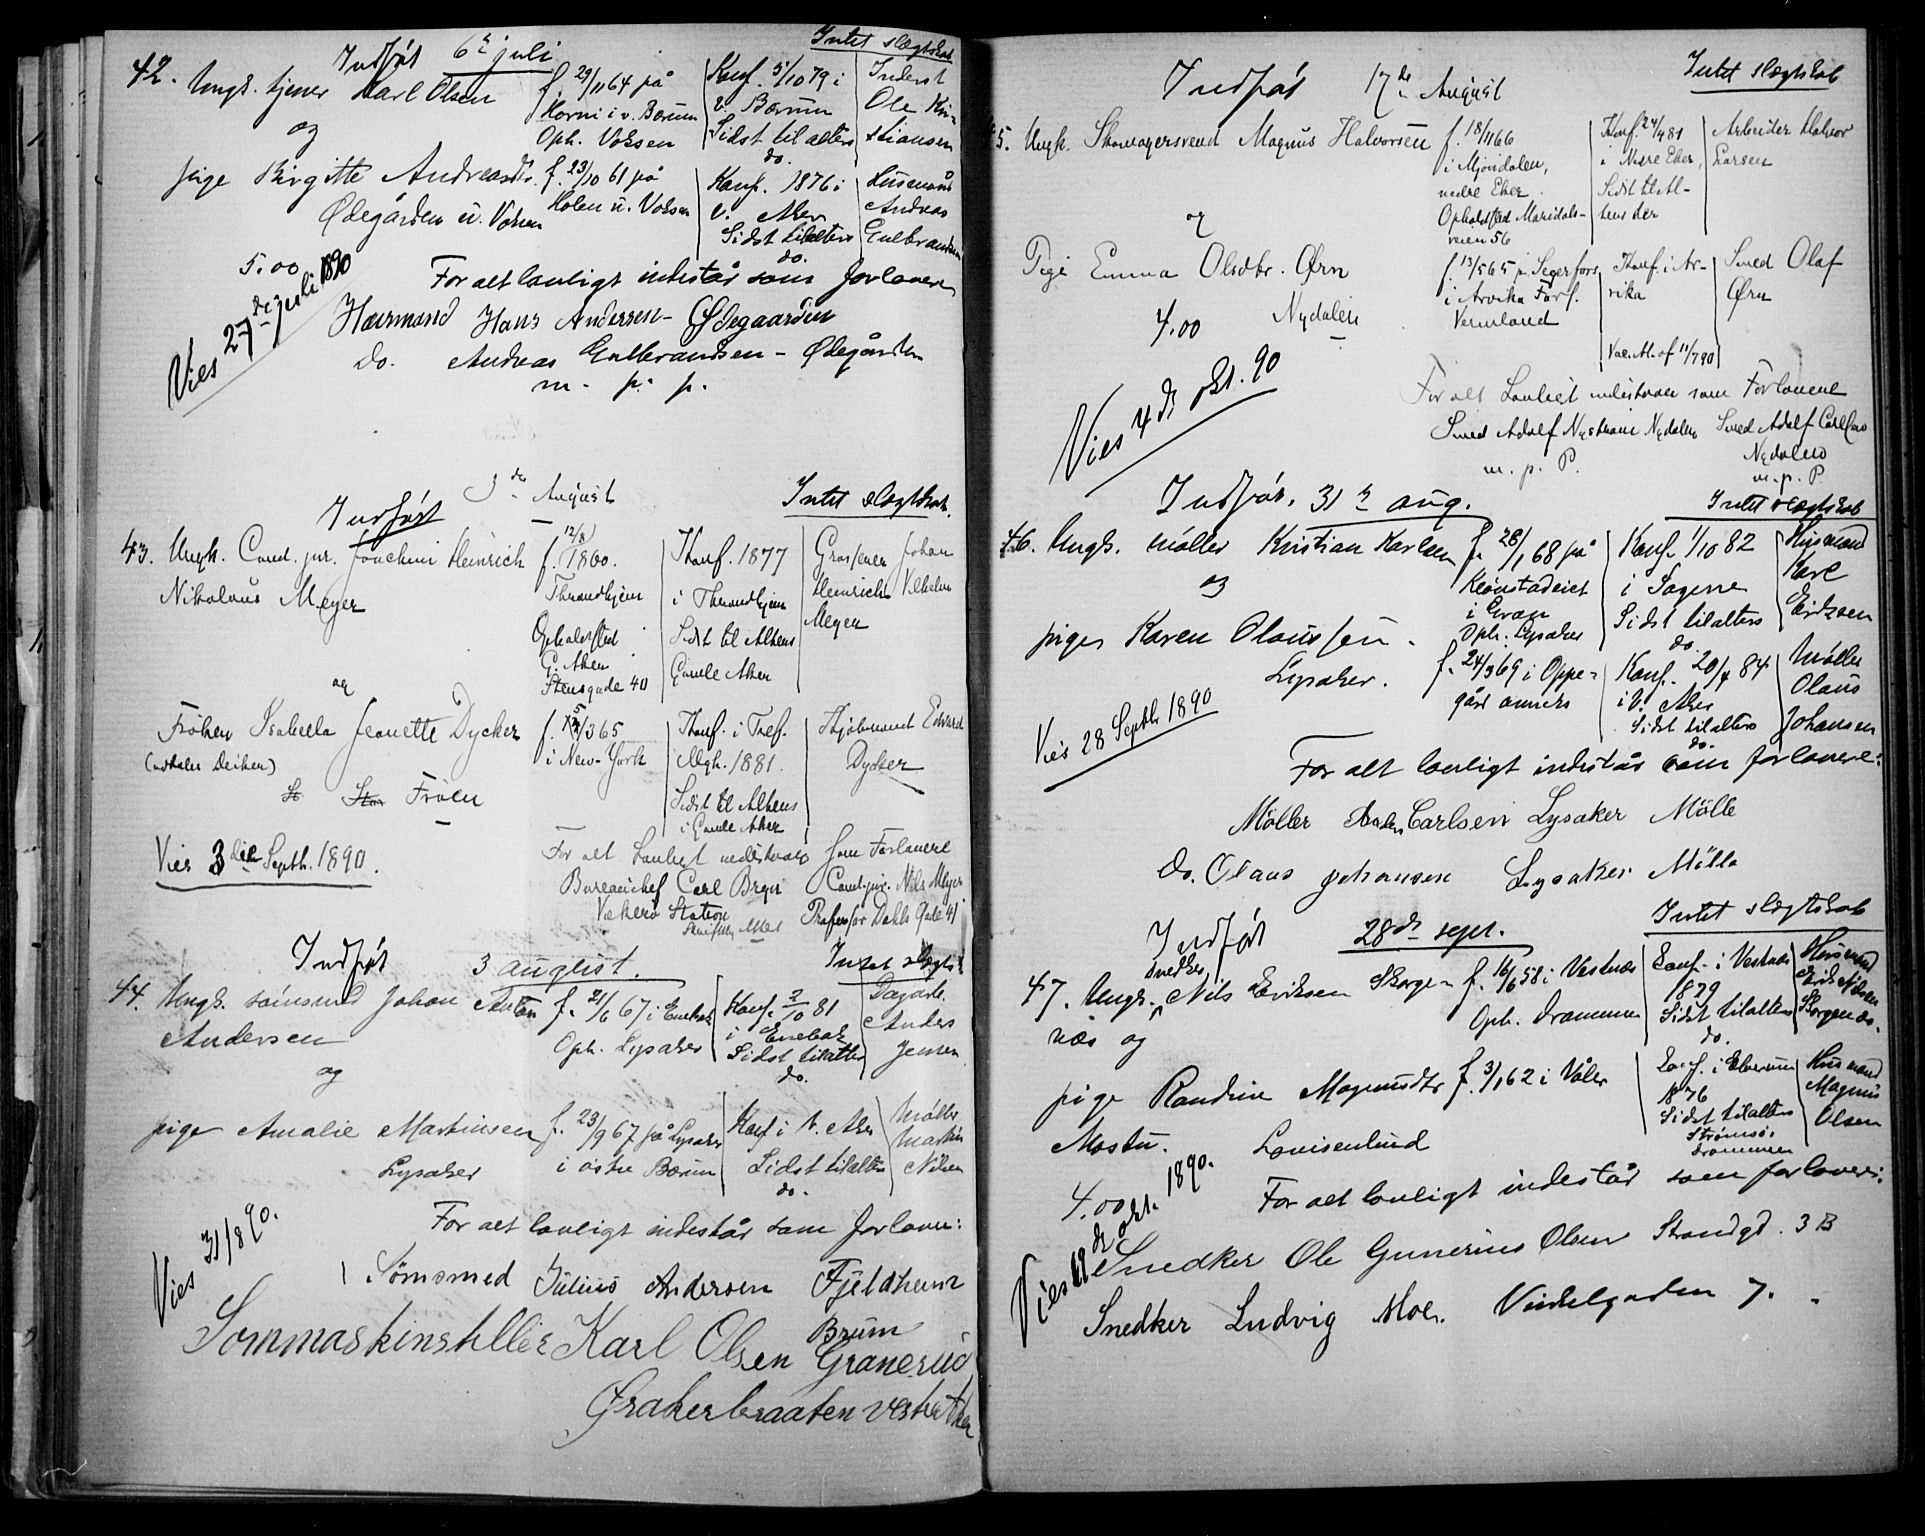 Indført 6te juli
Intet slægtskab
42. Ungk. tjener Karl Olsen
f. 29/11 64 på
Horni i v. Bærum
Oph. Voksen
Konf. 5/10 79 i
v. Bærum
Sidst til alters
do.
Inderst
Ole Kri-
stiansen
og
pige Birgitte Andreasdtr.
Ødegården u. Voksen
f. 23/10 61 på
Holen u. Voksen
Konf. 1876 i
V. Aker
Sidst til alters
do.
Husmand
Andreas
Gulbrandsen
5.00
Vies 27de juli 1890
For alt lovligt indestår som forlovere
Husmand Hans Andersen - Ødegaarden
do. Andreas Gulbrandsen - Ødegården
m. p. p.
Indført
3de August
Intet slægtskab.
43. Ungk. Cand. jur. Joachim Heinrich
Nikolaus Meyer
f. 12/8 1860.
Throndhjem
Opholdssted
G. Aker
Stensgade 40
Konf. 1877
i Throndhjem
Sidst til Alters
Gamle Aker
Grosserer Johan
Heinrich Vilhelm
Meyer
og
Frøken Isabella Jeanette Dycker
(udtales Deiker)
Frøen
f. /3 65
i New-York
Konf. i Tref.
Mgh. 1881.
Sidst til Alters
i Gamle Aker
Kjøbmand Edward
Dycker
Vies 3die Septb. 1890.
For alt Lovligt indestaaes som Forlovere
Bureauchef Carl
Cand. jur. Nils Meyer
Vækerø Station
Professor Dahls Gade 41
Indført
3 august.
Intet slægts.
44. Ungk. sømsmed Johan Anton
Andersen
f. 21/6 67 i Enebak
Oph. Lysaker
Konf. 2/10 81
i Enebak
Sidst til alters
do.
Dagarb.
Anders
Jensen
og
pige Amalie Martinsen
Lysaker
f. 23/9 67 på Lysaker
i østre Bærum
Konf i V. Aker
Sidst til alters
do.
Møller
Martin
Nilsen
Vies 31/8 90.
For alt lovligt indestår som forlovere:
Sømsmed Julius Andersen Fjeldheim
Bærum
Sømmaskinstiller Karl Olsen Granerud
Ørakerbraaten vestre Aker
Indført 17de August
Intet slægtskab
45. Ungk. Skomagersvend Magnus Halvorsen
f. 18/11 66
i Mjøndalen,
nedre Eker.
Opholdssted Maridals-
veien 56
Konf. 24/4 81
i Nedre Eker,
Sidst til Al-
ters der
Arbeider Halvor
Larsen
og
Pige Emma Olsdtr. Ørn
4.00
Nydalen
f. 13/5 65 p. Segerfors
i Arvika Förs.
Vermland
Konf. i Ar-
vika
Vac. At. af 11/7 90
Smed Olaf
Ørn
Vies 4de okt. 90
For alt Lovligt indestaaes som Forlovere
Smed Adolf Nystrøm Nydalen
Smed Adolf Carlsen
Nydalen
m. p. P.
m. p. P
Indført. 31te aug.
Intet slægtskab
46. Ungk. møller Kristian Karlsen
f. 28/1 68 på
Klønstadeiet
i Gran
Oph. Lysaker
Konf. 1/10 82
i Sogne
Sidst til alters
do.
Husmand
Karl
Eriksen
og
pige Karen Olaussen.
Lysaker.
f. 24/3 69 i Oppe-
gård anneks
Konf. 20/4 84
i V. Aker
Sidst til alters
do.
Møller
Olaus
Johansen
Vies 28 Septb. 1890
For alt lovligt indestår som forlovere:
Møller Anders Carlsen Lysaker Mølle
do. Olaus Johansen Lysaker Mølle
Indført 28de sept.
Intet slægtskab
47. Ungk. snedker Nils Eriksen Skorge-
næs og
f. 16/6 58 i Vestnæs
Oph. Drammen
Conf. i Vestnæs
1879
Sidst til alters
do.
Husmand
Erik Nilsen
Skorgenæs.
pige Randine Magnusdtr
Mostu. Louisenlund
f. 3/1 62 i Våler
Conf. i Elverum
1876
Sidst til alters
Strømsø,
Drammen
Husmand
Magnus
Olsen
4.00
Vies 19de okt. 1890.
For alt lovligt indestår som forlovere:
Snedker Ole Gunerius Olsen Strandgd. 3B
Snedker Ludvig Moe. Vinkelgaden 7.